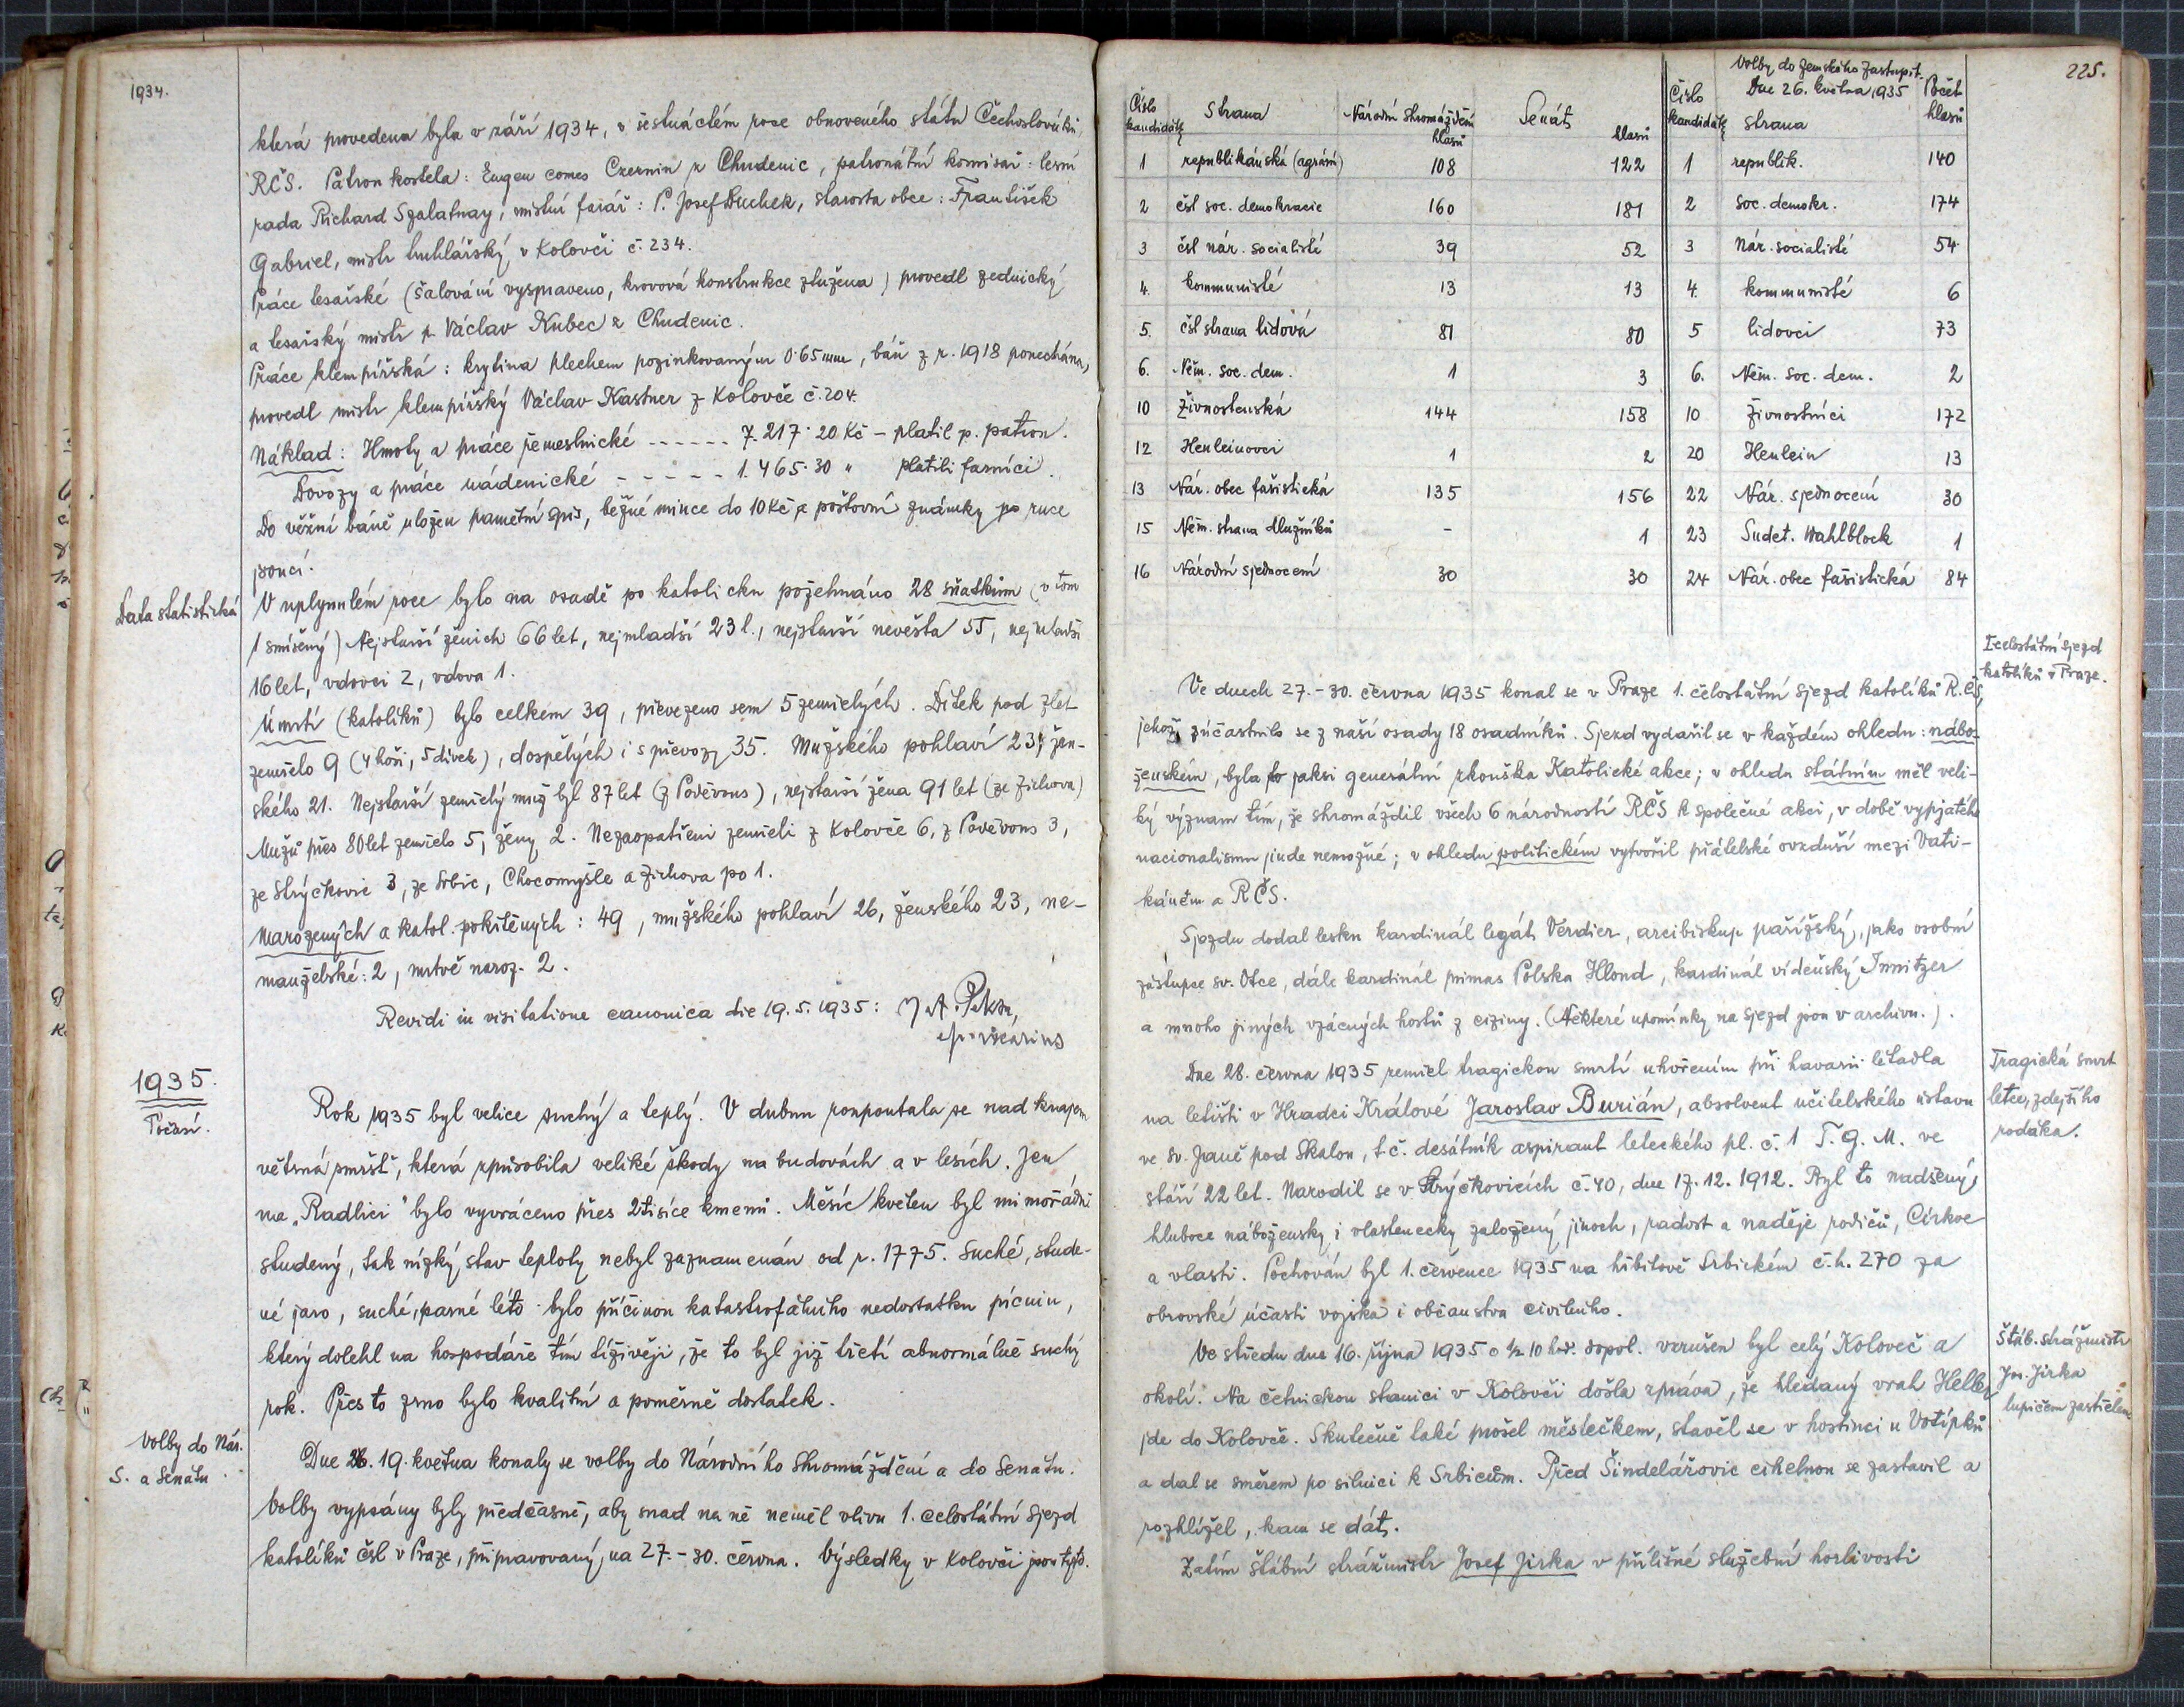 1934.
která provedena byla v září 1934, v šestnáctém roce obnoveného státu Čechoslováků,
RČS. Patron kostela: Eugen comes Czernin z Chudenic, patronátní komisař: lesní
rada Richard Szalatnay, místní farář: P. Josef Duchek, starosta obce: František
Gabriel, mistr truhlářský v Kolovči č. 234.
Práce tesařské (šalování vyspraveno, krovová konstrukce ztužena) provedl zednický
a tesařský mistr p. Václav Kubec z Chudenic.
Práce klempířská: krytina plechem pozinkovaným 0·65 mm, báň z r. 1918 ponechána,
provedl mistr klempířský Václav Kastner z Kolovče č. 204.
Náklad: Hmoty a práce řemeslnické ------ 7.217·20 Kč – platil p. patron.
Dovozy a práce nádenické ----- 1.465·30 " platili farníci.
Do věžní báně uložen pamětní spis, běžné mince do 10 Kč a poštovní známky po ruce
jsoucí.
Data statistická
V uplynulém roce bylo na osadě po katolicku požehnáno 28 sňatkům (v tom
1 smíšený) Nejstarší ženich 66 let, nejmladší 23 l., nejstarší nevěsta 55, nejmladší
16 let, vdovci 2, vdova 1.
Úmrtí (katolíků) bylo celkem 39, převezeno sem 5 zemřelých. Dítek pod 7 let
zemřelo 9 (4 hoši, 5 dívek), dospělých i s převozy 35. Mužského pohlaví 23, žen-
ského 21. Nejstarší zemřelý muž byl 87 let (z Poděvous), nejstarší žena 91 let (ze Zichova)
Mužů přes 80 let zemřelo 5, ženy 2. Nezaopatřeni zemřeli z Kolovče 6, z Poděvous 3,
ze Strýčkovic 3, ze Srbic, Chocomyšle a Zichova po 1.
Narozených a katol. pokřtěných: 49, mužského pohlaví 26, ženského 23, ne-
manželské: 2, mrtvě naroz. 2.
Revidi in visitatione canonica die 19. 5. 1935:
vicarius
1935.
Počasí.
Rok 1935 byl velice suchý a teplý. V dubnu rozpoutala se nad krajem
větrná smršť, která způsobila veliké škody na budovách a v lesích. Jen
na „Radlici" bylo vyvráceno přes 2 tisíce kmenů. Měsíc květen byl mimořádně
studený, tak nízký stav teploty nebyl zaznamenán od r. 1775. Suché, stude-
né jaro, suché, parné léto bylo příčinou katastrofálního nedostatku pícnin,
který dolehl na hospodáře tím tíživěji, že to byl již třetí abnormálně suchý
rok. Přes to zrno bylo kvalitní a poměrně dostatek.
Volby do Nár.
S. a Senátu.
Dne 19. května konaly se volby do Národního shromáždění a do Senátu.
Volby vypsány byly předčasně, aby snad na ně neměl vlivu 1. celostátní sjezd
katolíků čsl v Praze, připravovaný na 27.–30. června. Výsledky v Kolovči jsou tyto.
225.
Volby do zemského zastupit.
Dne 26. května 1935
Číslo kandidátky Strana Národní shromáždění hlasů Senát hlasů Číslo kandidátky strana Počet hlasů
1 republikánská (agrární) 108 122 1 republik. 140
2 čsl soc. demokracie 160 181 2 Soc. demokr. 174
3 čsl nár. socialisté 39 52 3 Nár. socialisté 54
4. kommunisté 13 13 4. kommunisté 6
5. čsl strana lidová 81 80 5 lidovci 73
6. Něm. soc. dem. 1 3 6. Něm. soc. dem. 2
10 Živnostenská 144 158 10 Živnostníci 172
12 Henleinovci 1 2 20 Henlein 13
13 Nár. obec fašistická 135 156 22 Nár. sjednocení 30
15 Něm. strana dlužníků - 1 23 Sudet. Wahlblock 1
16 Národní sjednocení 30 30 24 Nár. obec fašistická 84
I celostátní sjezd
katolíků v Praze.
Ve dnech 27.–30. června 1935 konal se v Praze 1. celostátní sjezd katolíků R.ČS,
jehož zúčastnilo se z naší osady 18 osadníků. Sjezd vydařil se v každém ohledu: nábo-
ženském, byla to jaksi generální zkouška Katolické akce; v ohledu státním měl veli-
ký význam tím, že shromáždil všech 6 národností RČS k společné akci, v době vypjatého
nacionalismu jinde nemožné; v ohledu politickém vytvořil přátelské ovzduší mezi Vati-
kánem a RČS.
Sjezdu dodal lesku kardinál legát Verdier, arcibiskup pařížský, jako osobní
zástupce sv. Otce, dále kardinál primas Polska Hlond, kardinál vídeňský Innitzer
a mnoho jiných vzácných hostů z ciziny. (Některé upomínky na sjezd jsou v archivu.).
Tragická smrt
letce, zdejšího
rodáka.
Dne 28. června 1935 zemřel tragickou smrtí uhořením při havarii letadla
na letišti v Hradci Králové Jaroslav Burián, absolvent učitelského ústavu
ve Sv. Janě pod Skalou, t. č. desátník aspirant leteckého pl. č. 1 T. G. M. ve
stáří 22 let. Narodil se v Strýčkovicích č. 40, dne 17. 12. 1912. Byl to nadšený,
hluboce nábožensky i vlastenecky založený jinoch, radost a naděje rodičů, Církve
a vlasti. Pochován byl 1. července 1935 na hřbitově Srbickém č. h. 270 za
obrovské účasti vojska i občanstva civilního.
Štáb. strážmistr
Jos. Jirka
lupičem zastřelen
Ve středu dne 16. října 1935 o ½ 10 hod. dopol. vzrušen byl celý Koloveč a
okolí. Na četnickou stanici v Kolovči došla zpráva, že hledaný vrah Heller
jde do Kolovče. Skutečně také prošel městečkem, stavěl se v hostinci u Votípků
a dal se směrem po silnici k Srbicům. Před Šindelářovic cihelnou se zastavil a
rozhlížel, kam se dát.
Zatím štábní strážmistr Josef Jirka v přílišné služební horlivosti